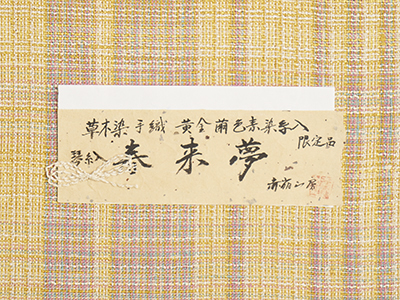 草木染 手織 黄金繭色素染糸入
限定品
琴糸入 春来夢
赤嶺工房